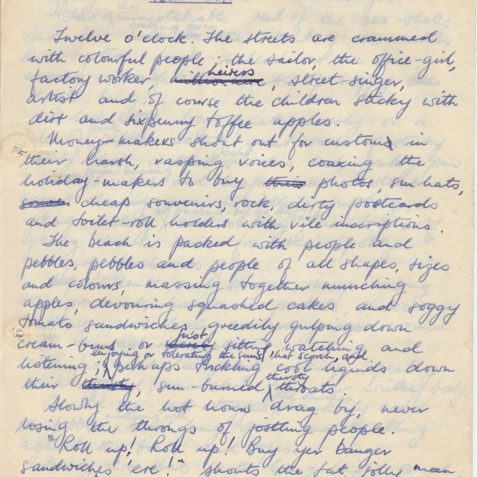 Twelve o'clock. The streets are crammed
with colourful people; the sailor, the office-girl,
heiress
factory worker, millionaire, street-singer,
artist and of course the children sticky with
dirt and sixpenny toffee apples.
Money-makers shout out for custom in
their harsh, rasping voices, coaxing the
holiday-makers to buy this photos, sun hats,
some cheap souvenirs, rock, dirty postcards
and toilet-roll holders with vile inscriptions.
The beach is packed with people and
pebbles, pebbles and people of all shapes, sizes
and colours, massing together munching
apples, devouring squashed cakes and soggy
tomato sandwiches, greedily gulping down
just
cream-buns or sitting watching and
enjoying or tolerating the sun's hot scorch, and
listening; perhaps trickling cool liquids down
thirsty
their thirsty, sun-burned throats.
Slowly the hot hours drag by, never
losing the throngs of jostling people.
"Roll up! Roll up! Buy yer banger
sandwiches 'ere!" shouts the fat, jolly man,